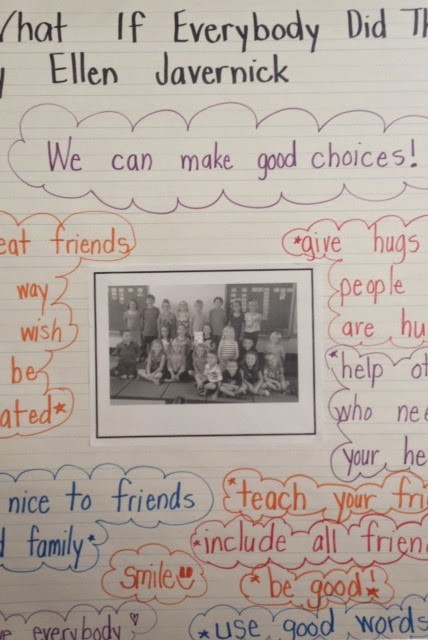 What If Everybody Did Th
y Ellen Javernick
We can make good choices!
eat friends
way
wish
be
ated*
*give hugs
people
are hu
*help ot
who nee
your he
nice to friends
d family*
smile
*teach your frie
*include all frien
*be good!*
e everybody
*use good words